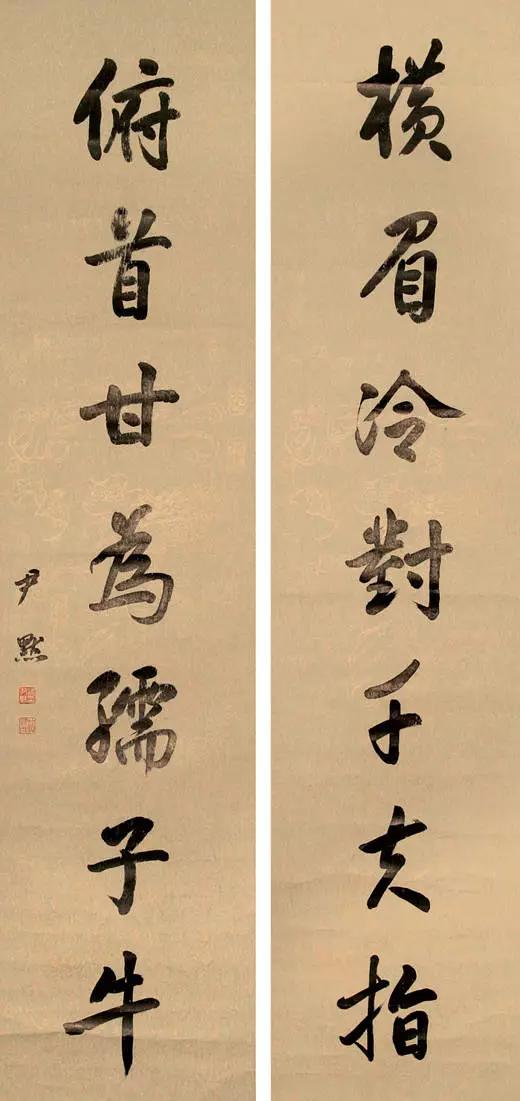 横眉冷對千夫指
俯首甘為孺子牛
尹默